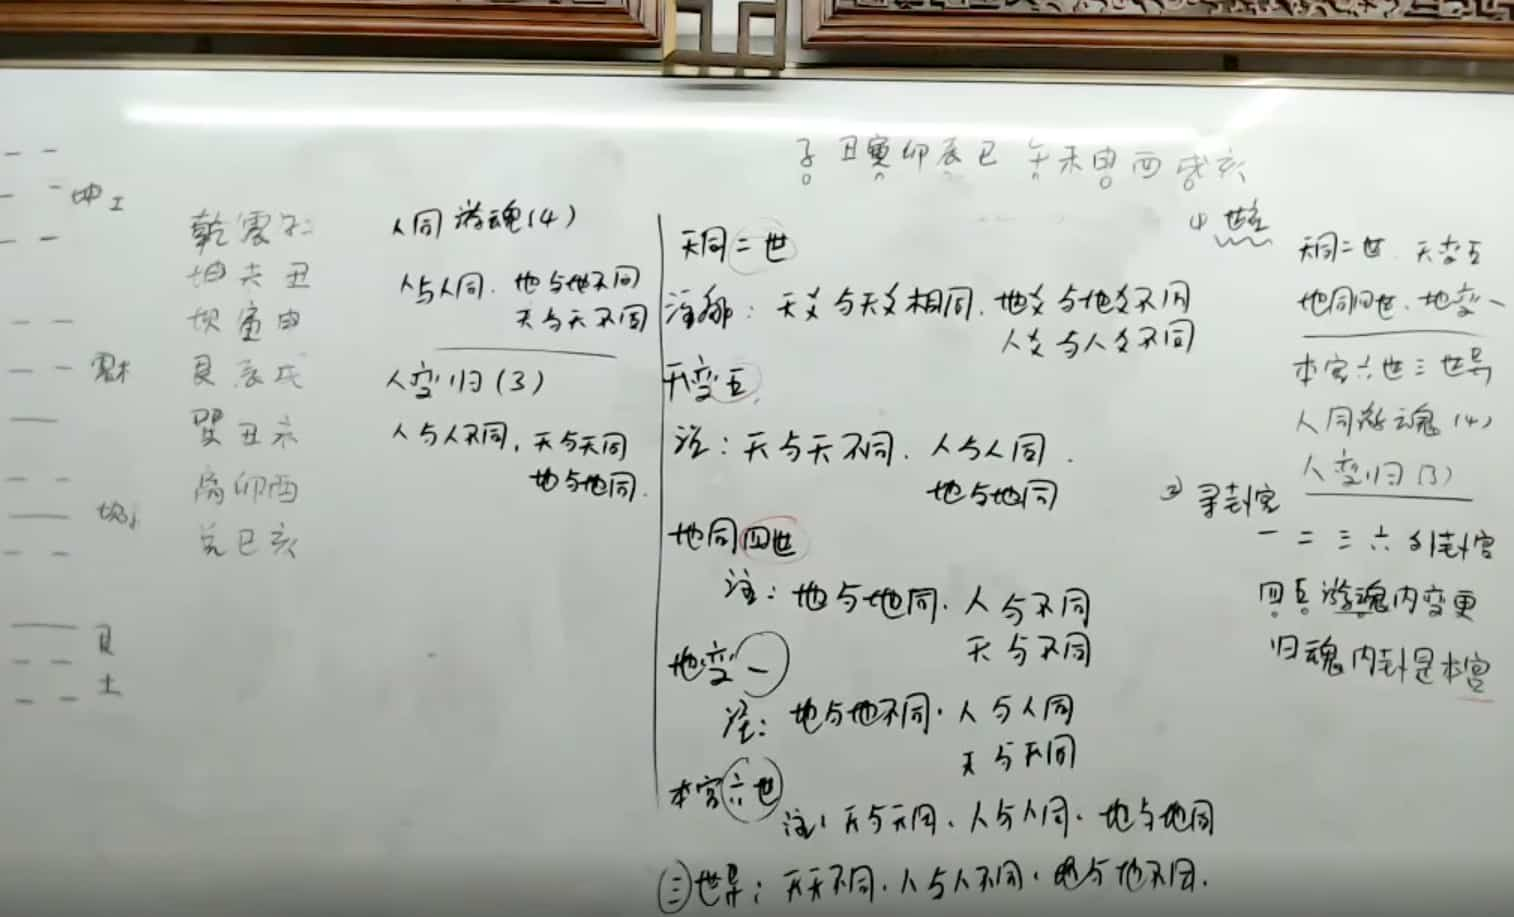 子丑寅卯辰巳 午未申酉戌亥
坤土
震木
艮
土
乾震子
坤 丑
坎寅申
艮辰戌
巽丑未
离卯酉
兑巳亥
人同游魂(4)
人与人同. 地与地不同
天与天不同
人变归(3)
人与人不同, 天与天同
地与地同.
天同二世
注解: 天爻与天爻相同. 地爻与地爻不同
人爻与人爻不同
天变五
注: 天与天不同. 人与人同.
地与地同
地同四世
注: 地与地同. 人与不同
天与不同
地变一
注: 地与地不同. 人与人同
天与天同
本宫六世
注: 天与天同. 人与人同. 地与地同
三世异: 天天不同. 人与人不同. 地与地不同.
天同二世. 天变五
地同四世. 地变一
本宫六世三世异
人同游魂(4)
人变归(3)
② 寻卦宫
一二三六外卦宫
四五游魂内变更
归魂内卦是本宫